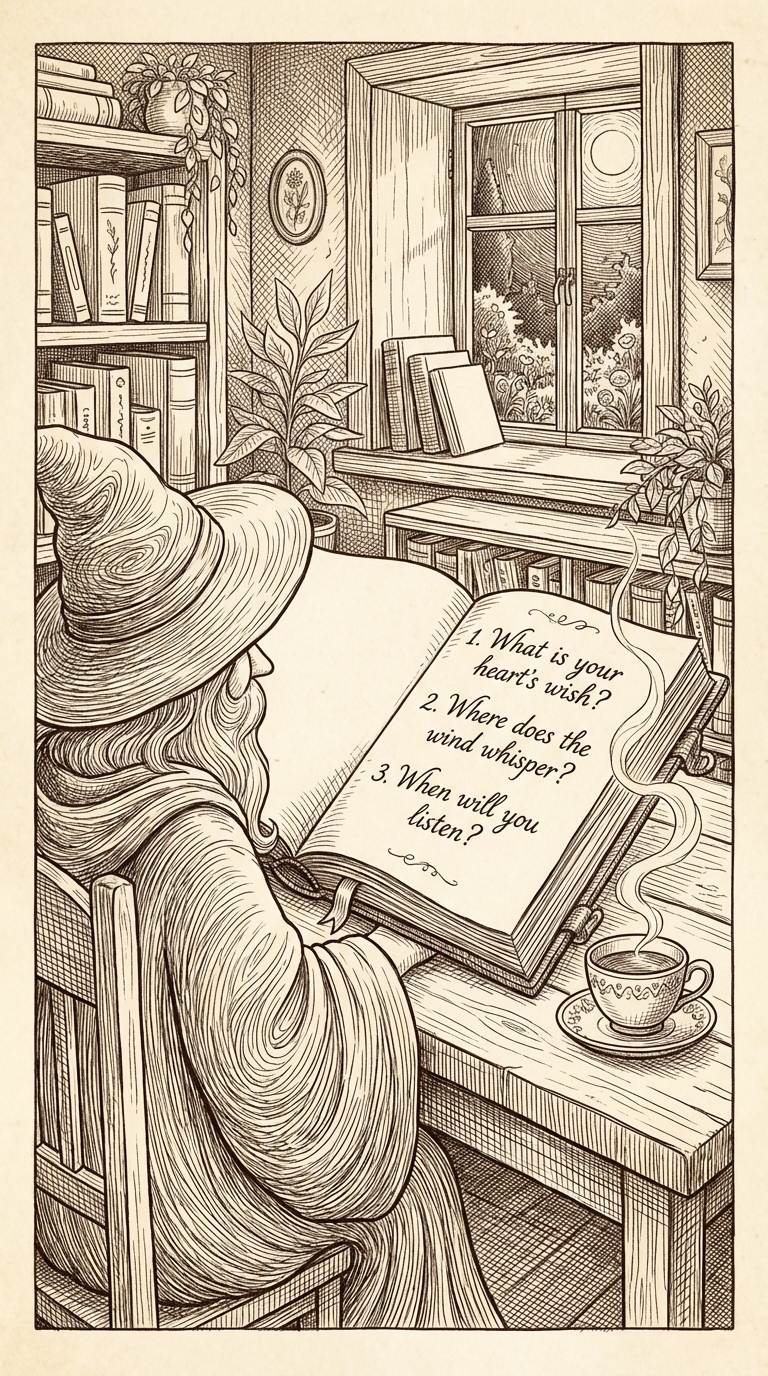 1. What is your
heart's wish?
2. Where does the
wind whisper?
3. When will you
listen?